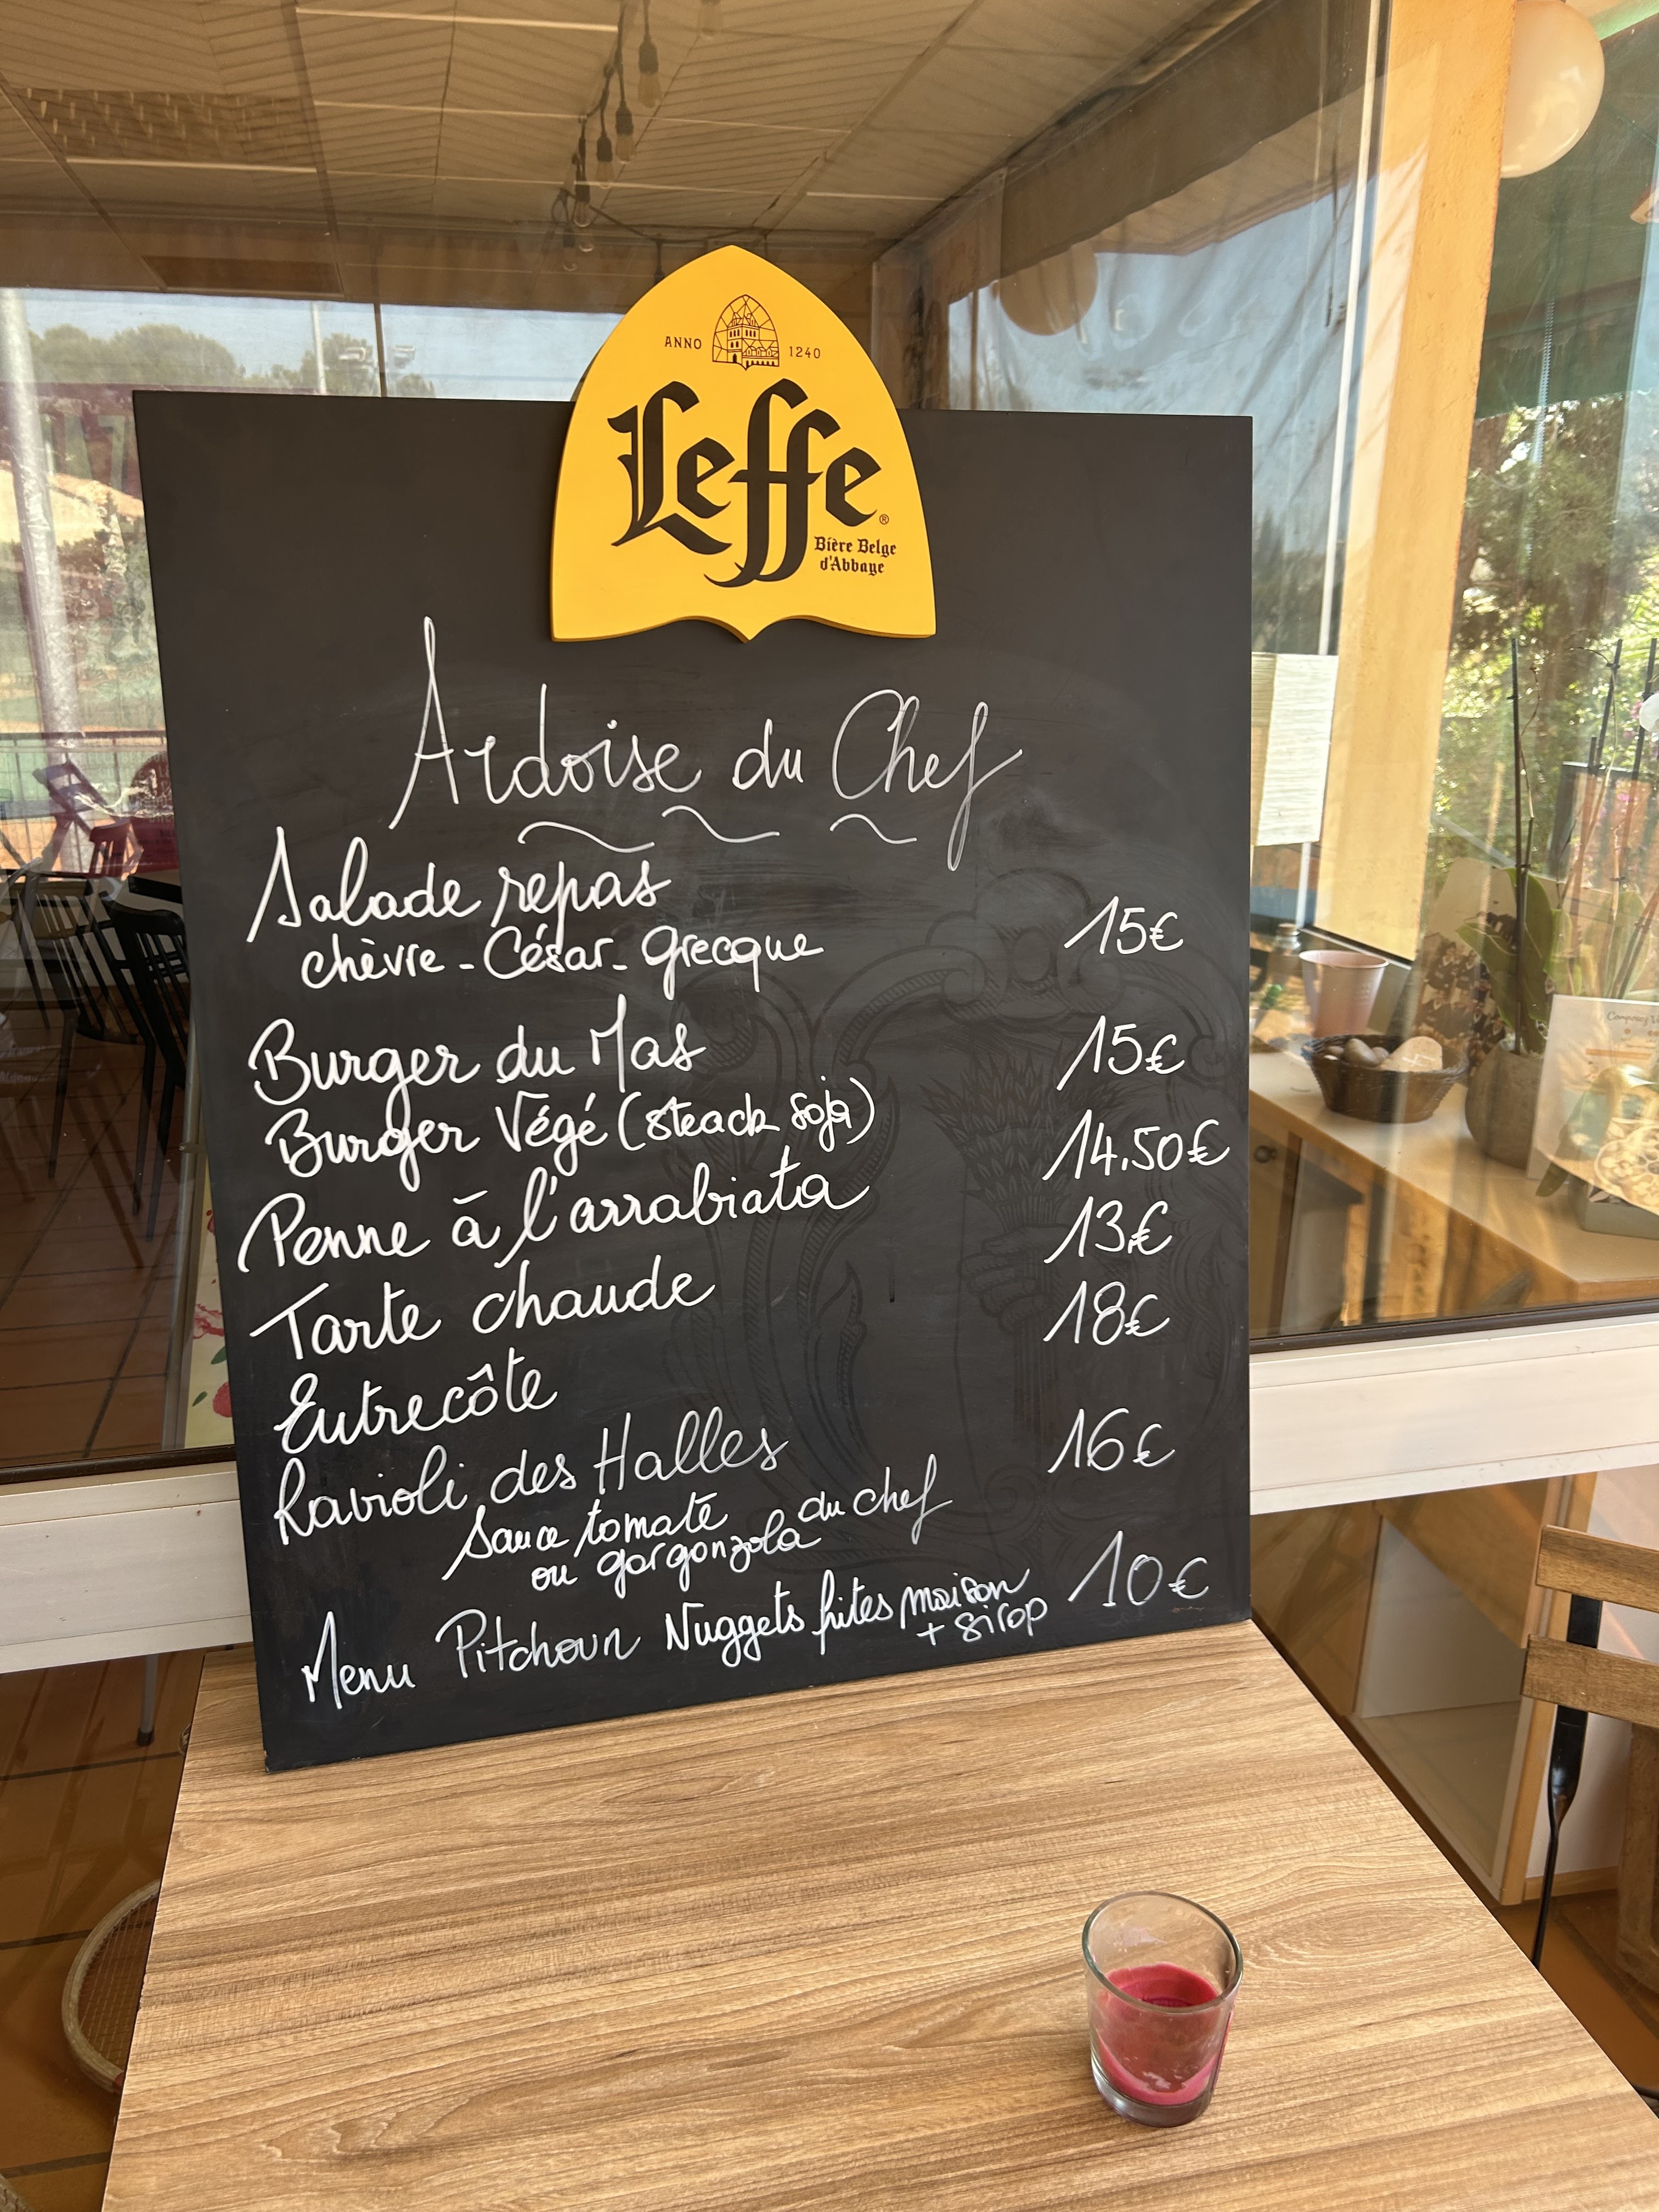 ANNO 1240
Leffe®
Bière Belge
d'Abbaye
Ardoise du Chef
Salade repas
chèvre - César - Grecque 15€
Burger du Mas 15€
Burger Végé (steack soja)
Penne à l'arrabiata 14.50€
Tarte chaude 13€
Entrecôte 18€
Ravioli des Halles 16€
sauce tomate du chef
ou gorgonzola
Menu Pitchoun Nuggets frites maison 10€
+ sirop